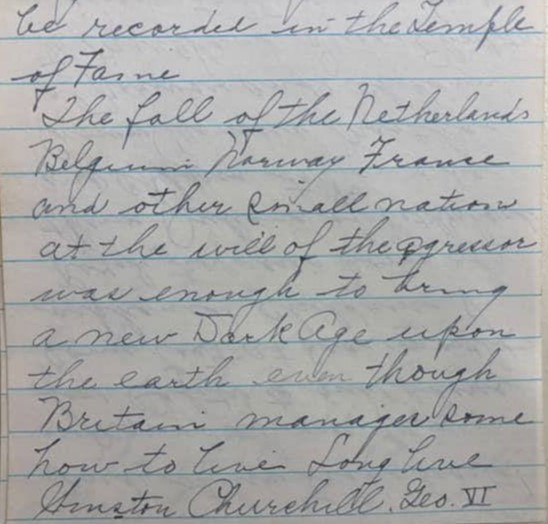 be recorded in the Temple
of Fame
The fall of the Netherlands
Belgium Norway France
and other small nation
at the will of the agressor
was enough to bring
a new Dark Age upon
the earth even though
Britain manager some
how to live Long live
Winston Churchill. Geo. VI